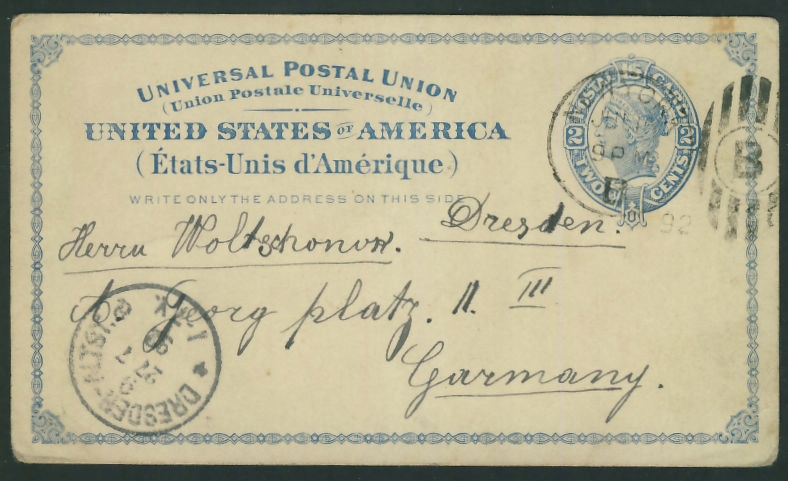 UNIVERSAL POSTAL UNION
(Union Postale Universelle)
UNITED STATES OF AMERICA
(États-Unis d'Amérique)
WRITE ONLY THE ADDRESS ON THIS SIDE
POSTAL CARD
2 2
TWO CENTS
9 PM
B
92
Dresden.
Herrn Woltschonow.
Georg platz. 11. III
Garmany.
DRESDEN-ALTST.